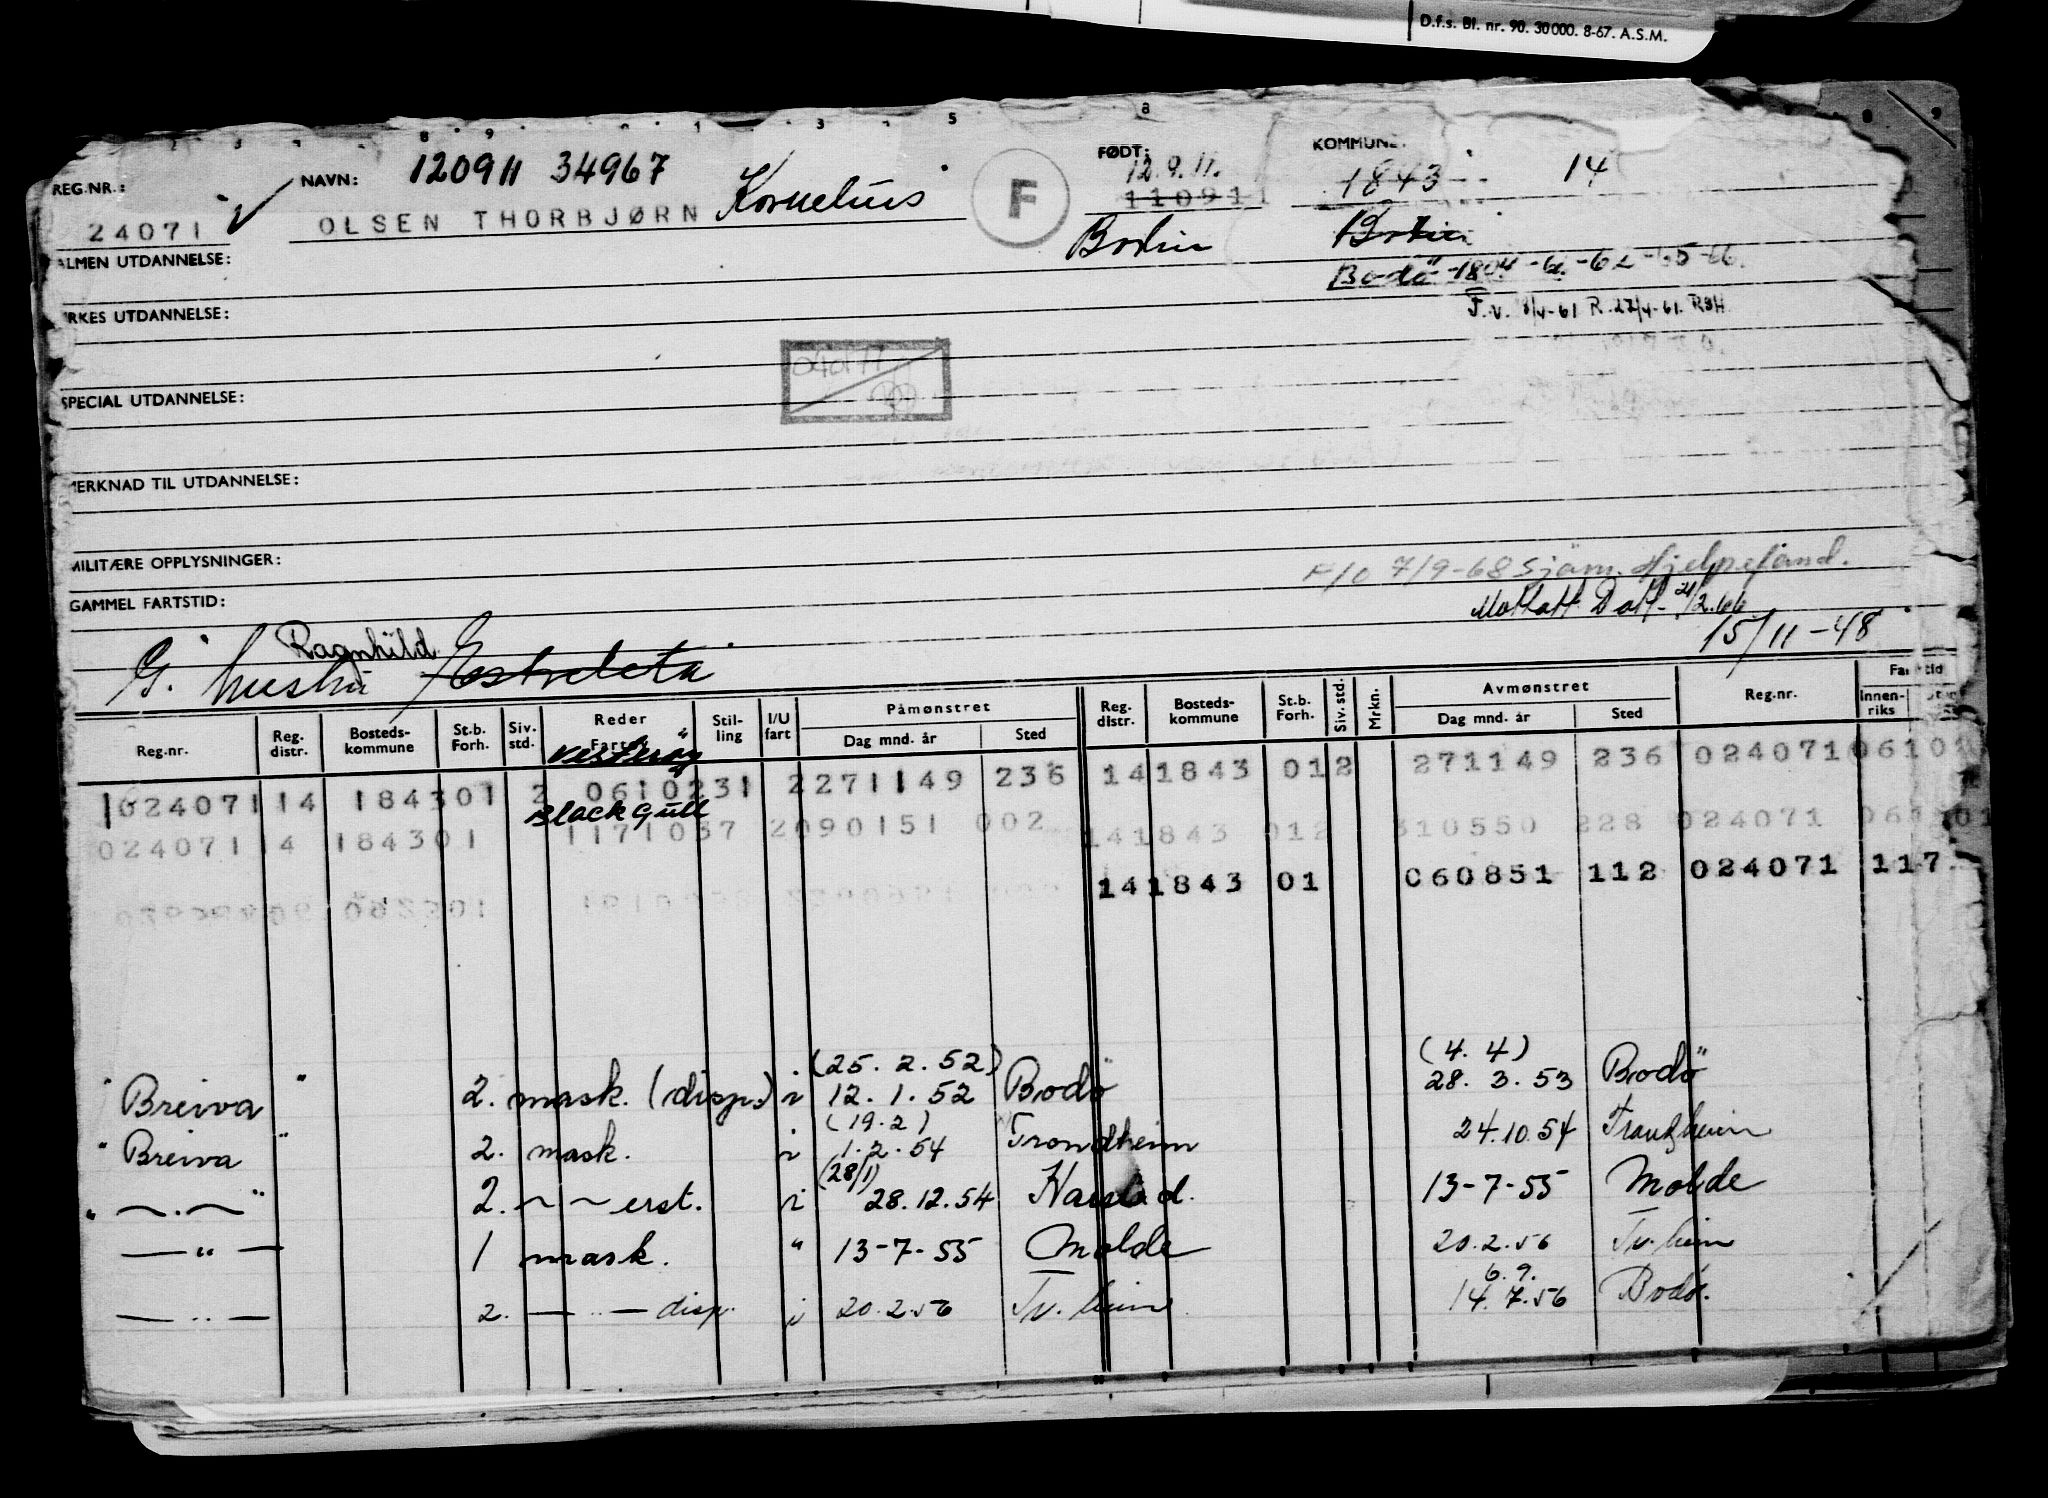 D.f.s. Bl. nr. 90. 30 000. 8-67. A.S.M.
REG.NR.: 24071 NAVN: 120911 34967 FØDT: 12.9.11. KOMMUNE: 1843 14
OLSEN THORBJØRN Kornelius F 110911
Bodin Bodin
ALMEN UTDANNELSE: Bodö -1804 -61 -62 -65 -66.
YRKES UTDANNELSE: F.v. 8/4-61 R. 27/4-61. RSH
SPECIAL UTDANNELSE:
MERKNAD TIL UTDANNELSE:
MILITÆRE OPPLYSNINGER: F/O 7/9-68 Sjöm. Hjelpefond.
GAMMEL FARTSTID: Mottatt Datt. 21/2.66
15/11-48
G. hustru Ragnhild
Reg.nr. Reg. distr. Bosteds-kommune St.b. Forh. Siv. std. Reder Fartøy Stil-ling I/U fart Påmønstret Dag mnd. år Sted Reg. distr. Bosteds-kommune St.b. Forh. Siv. std. Mrkn. Avmønstret Dag mnd. år Sted Reg.nr. Fartstid Innen-riks
Vesteröy
024071 14 1843 01 2 0610231 2 271149 236 14 1843 01 2 271149 236 024071 06101
Black Gull
024071 14 1843 01 1171037 2 090151 002 14 1843 01 2 310550 228 024071
14 1843 01 060851 112 024071 117
(25. 2. 52) (4. 4)
" Breiva " 2. mask. (disp.) i 12. 1. 52 Bodö 28. 3. 53 Bodö
(19.2)
" Breiva " 2. mask. i 1. 2. 54 Trondheim 24.10.54 Trondheim
(28/1)
" — . — " 2. — — erst. i 28.12.54 Harstad. 13-7-55 Molde
— " — 1 mask. " 13-7-55 Molde 20.2.56 Tr. heim
6.9.
— " — 2. — " — disp. i 20.2.56 Tr. heim 14.7.56 Bodö.